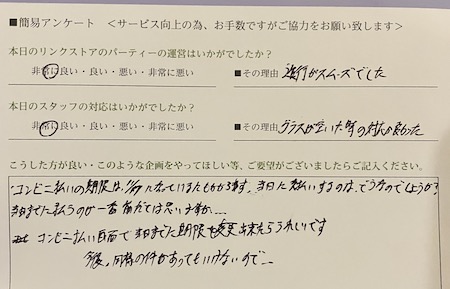 ■簡易アンケート　＜サービス向上の為、お手数ですがご協力をお願い致します＞
本日のリンクストアのパーティーの運営はいかがでしたか？
非常に良い・良い・悪い・非常に悪い　■その理由　進行がスムーズでした
本日のスタッフの対応はいかがでしたか？
非常に良い・良い・悪い・非常に悪い　■その理由　グラスが空いた時の対応が良かった
こうした方が良い・このような企画をやってほしい等、ご要望がございましたらご記入ください。
コンビニ払いの期限は、
当日に支払いするのは、どうなのでしょうか？
当日までに払うのが一番
コンビニ払い画面で当日までに期限を変更出来たらうれしいです
今後、同様の件があってもいけないので…